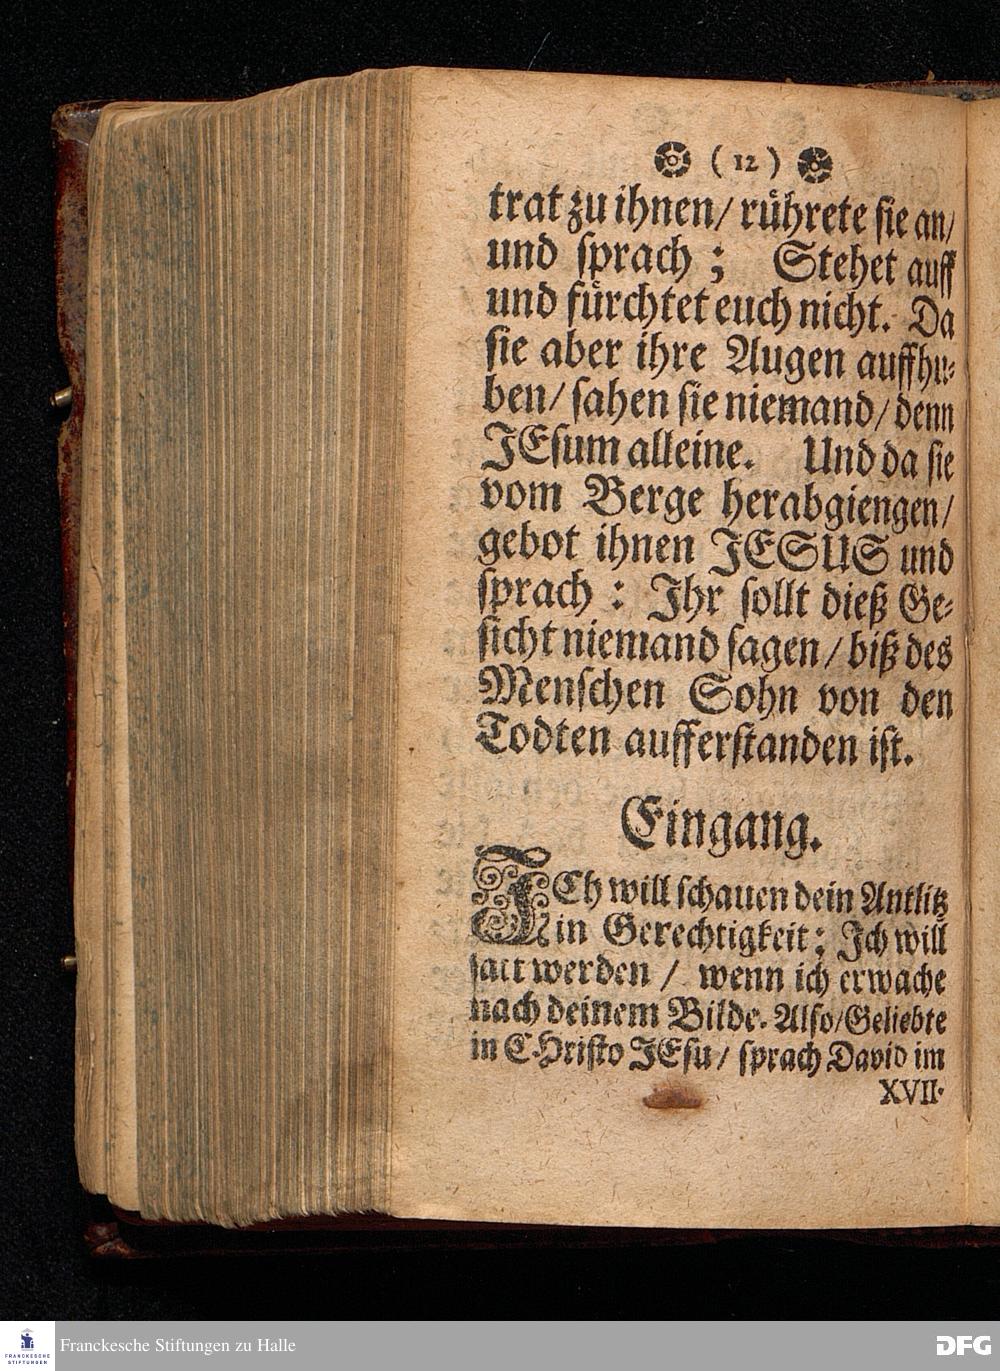 ( 12 )
trat zu ihnen/ rührete sie an/
und sprach ; Stehet auff
und fürchtet euch nicht. Da
sie aber ihre Augen auffhu-
ben/ sahen sie niemand/ denn
JEsum alleine. Und da sie
vom Berge herabgiengen/
gebot ihnen JESUS und
sprach : Ihr sollt dieß Ge-
sicht niemand sagen/ biß des
Menschen Sohn von den
Todten aufferstanden ist.
Eingang.
ICh will schauen dein Antlitz
in Gerechtigkeit; Ich will
satt werden / wenn ich erwache
nach deinem Bilde. Also/Geliebte
in CHristo JEsu/ sprach David im
XVII.
FRANCKESCHE
STIFTUNGEN
Franckesche Stiftungen zu Halle
DFG